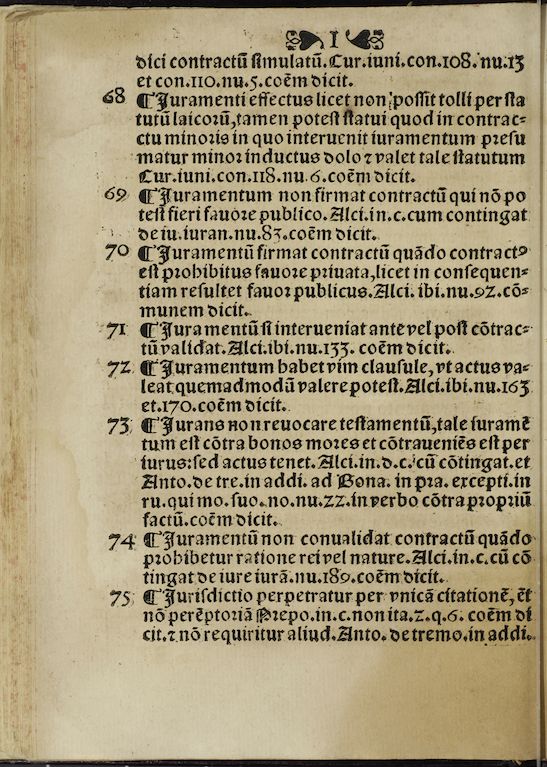 I
dici contractū simulatū. Cur. iuni. con. 108. nu. 13
et con. 110. nu. 5. coēm dicit.
68 ¶ Juramenti effectus licet non possit tolli per sta
tutū laicorū, tamen potest statui quod in contrac-
ctu minoris in quo interuenit iuramentum presu
matur minor inductus dolo ⁊ valet tale statutum
Cur. iuni. con. 118. nu. 6. coēm dicit.
69 ¶ Juramentum non firmat contractū qui nō po
test fieri fauore publico. Alci. in. c. cum contingat
de iu. iuran. nu. 83. coēm dicit.
70 ¶ Juramentū firmat contractū quādo contractꝰ
est prohibitus fauore priuata, licet in consequen-
tiam resultet fauor publicus. Alci. ibi. nu. 92. cō-
munem dicit.
71 ¶ Juramentū si interueniat ante vel post cōtrac-
tū validat. Alci. ibi. nu. 133. coēm dicit.
72 ¶ Juramentum habet vim clausule, vt actus va-
leat quemadmodū valere potest. Alci. ibi. nu. 163
et. 170. coēm dicit.
73 ¶ Jurans non reuocare testamentū, tale iuramē
tum est cōtra bonos mores et cōtraueniēs est per
iurus: sed actus tenet. Alci. in. d. c. cū cōtingat. et
Anto. de tre. in addi. ad Bona. in pra. excepti. in
ru. qui mo. suo. no. nu. 22. in verbo cōtra propriū
factū. coēm dicit.
74 ¶ Juramentū non conualidat contractū quādo
prohibetur ratione rei vel nature. Alci. in. c. cū cō
tingat de iure iurā. nu. 189. coēm dicit.
75 ¶ Jurisdictio perpetratur per vnicā citationē, ēt
nō perēptoriā Prepo. in. c. non ita. 2. q. 6. coēm di
cit. ⁊ nō requiritur aliud. Anto. de tremo. in addi.